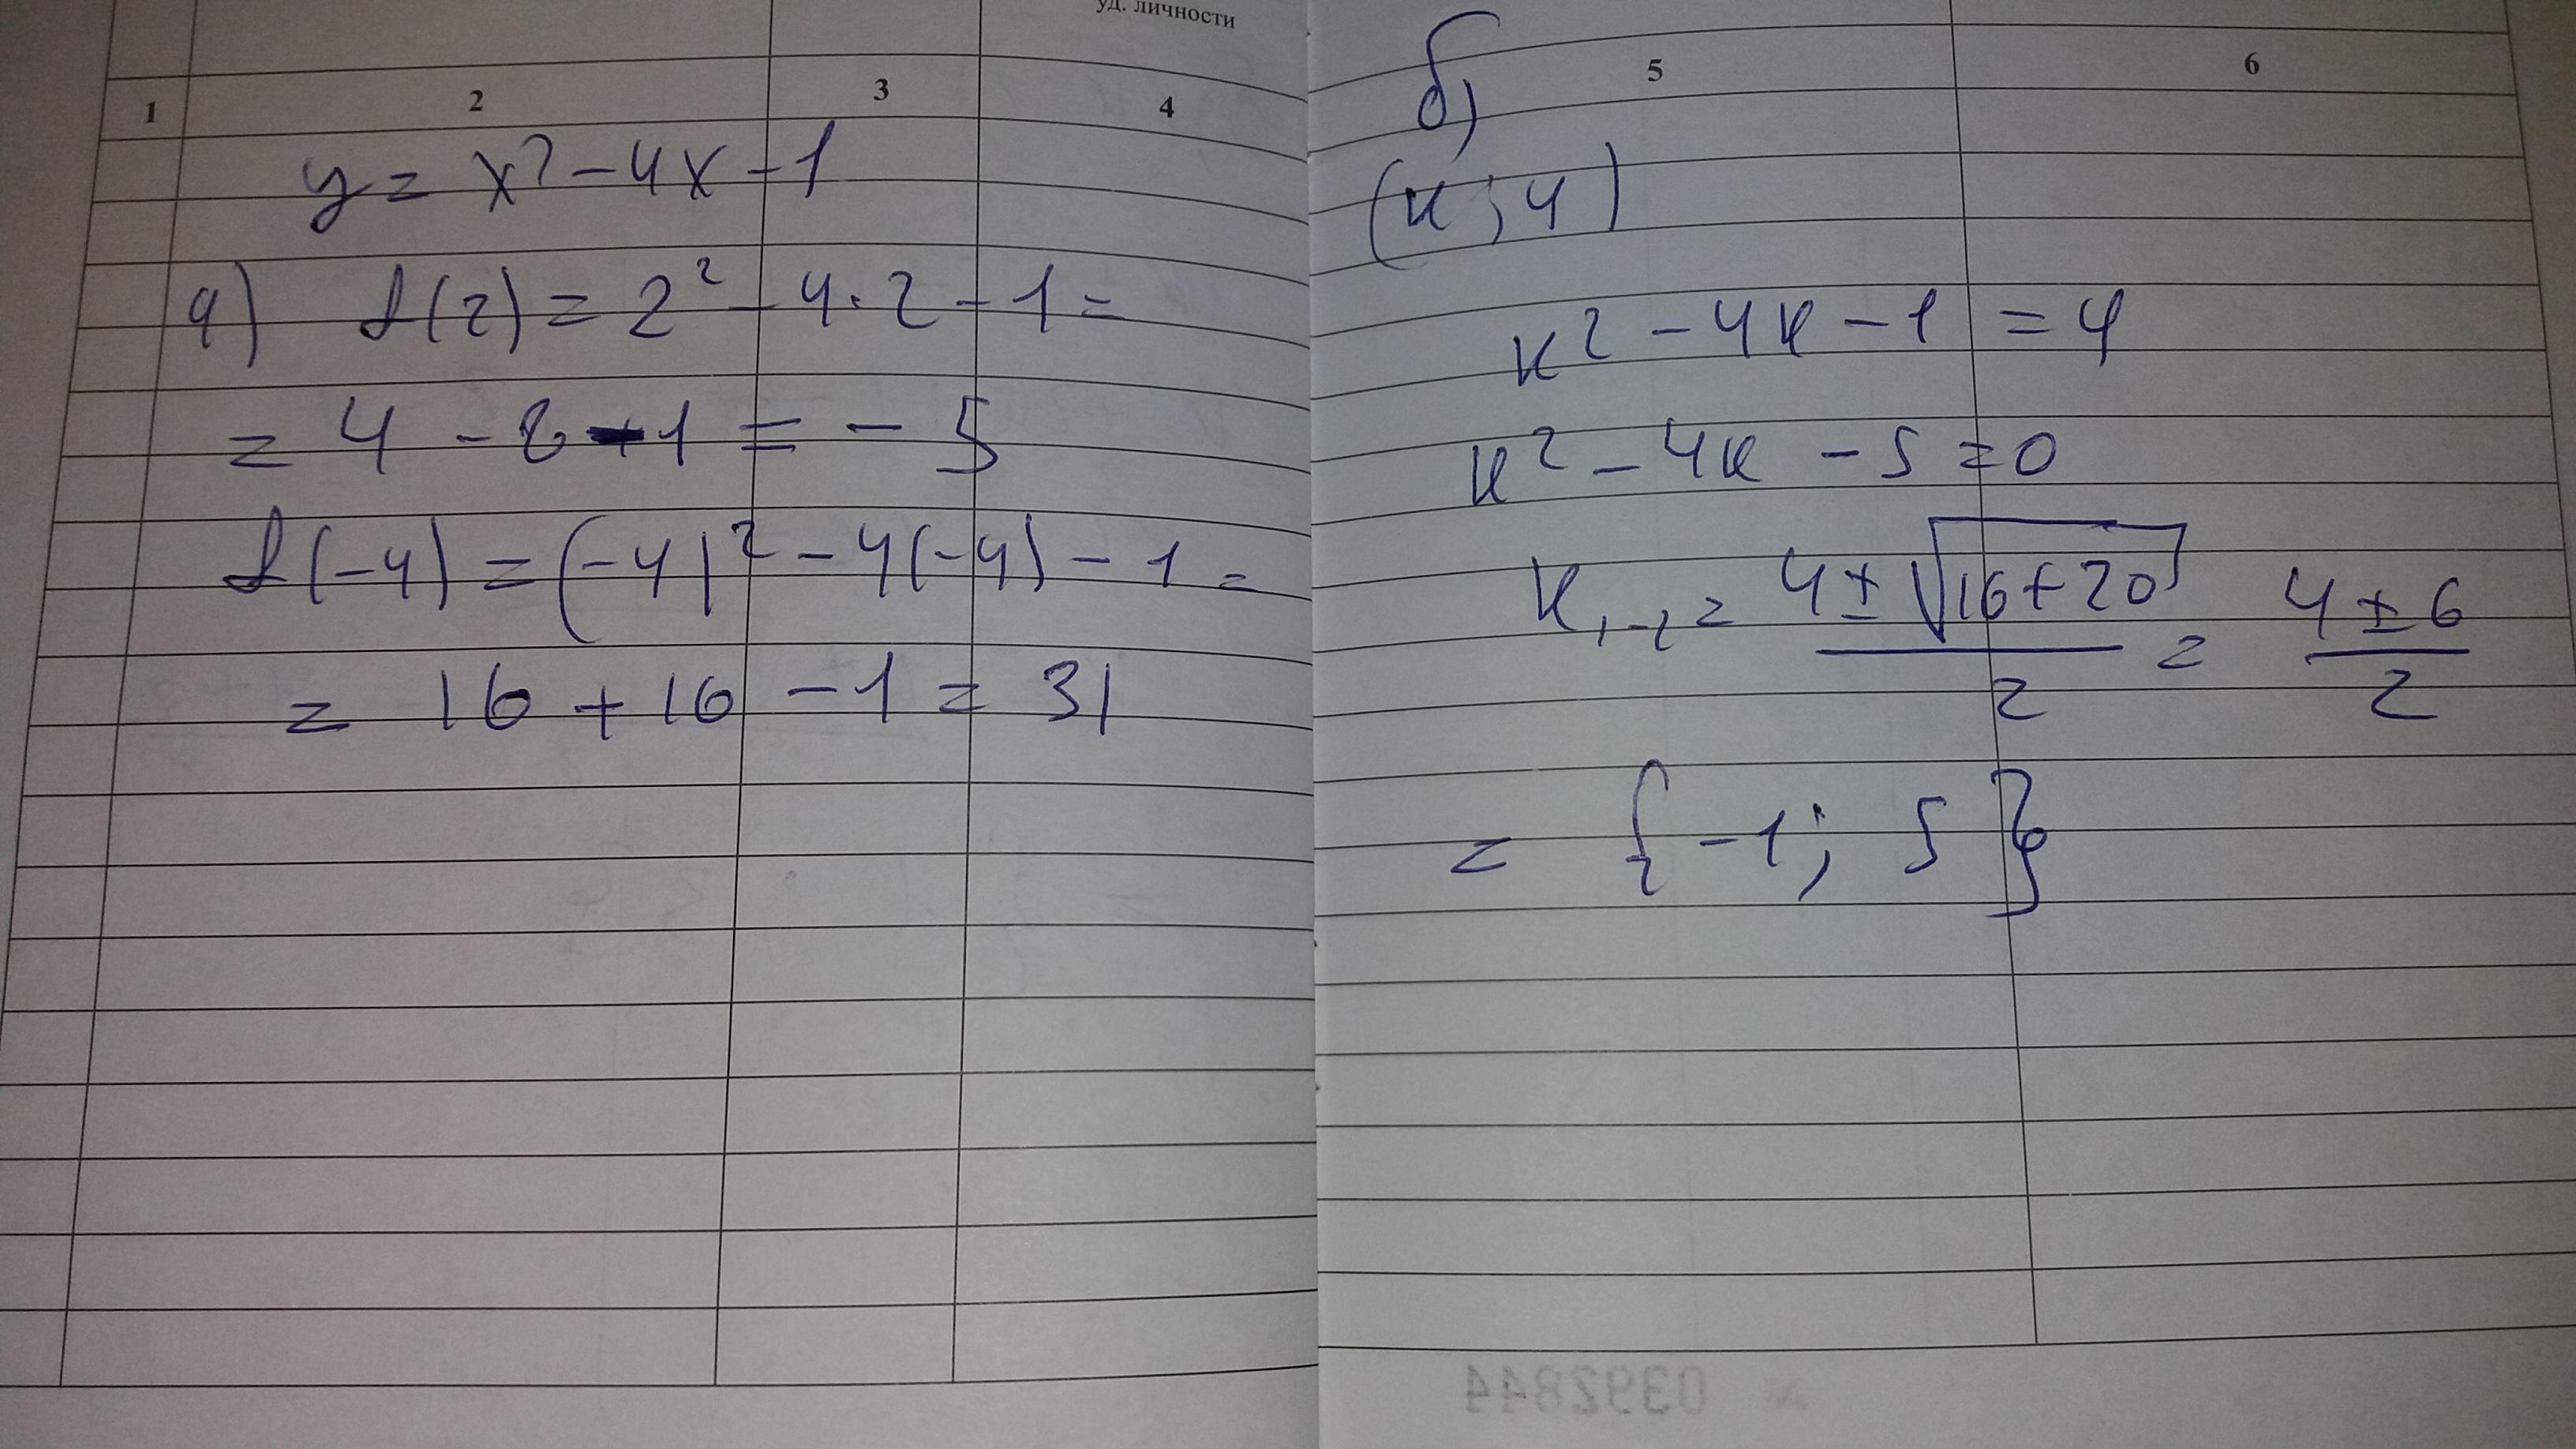 уд. личности
1 2 3 4
y = x² - 4x - 1
а) f(2) = 2² - 4·2 - 1 =
= 4 - 8 - 1 = - 5
f(-4) = (-4)² - 4(-4) - 1 =
= 16 + 16 - 1 = 31
5 6
б)
(к; 4)
к² - 4к - 1 = 4
к² - 4к - 5 = 0
к₁,₂ = (4 ± √(16+20))/2 = (4 ± 6)/2
= {-1; 5}
0392844